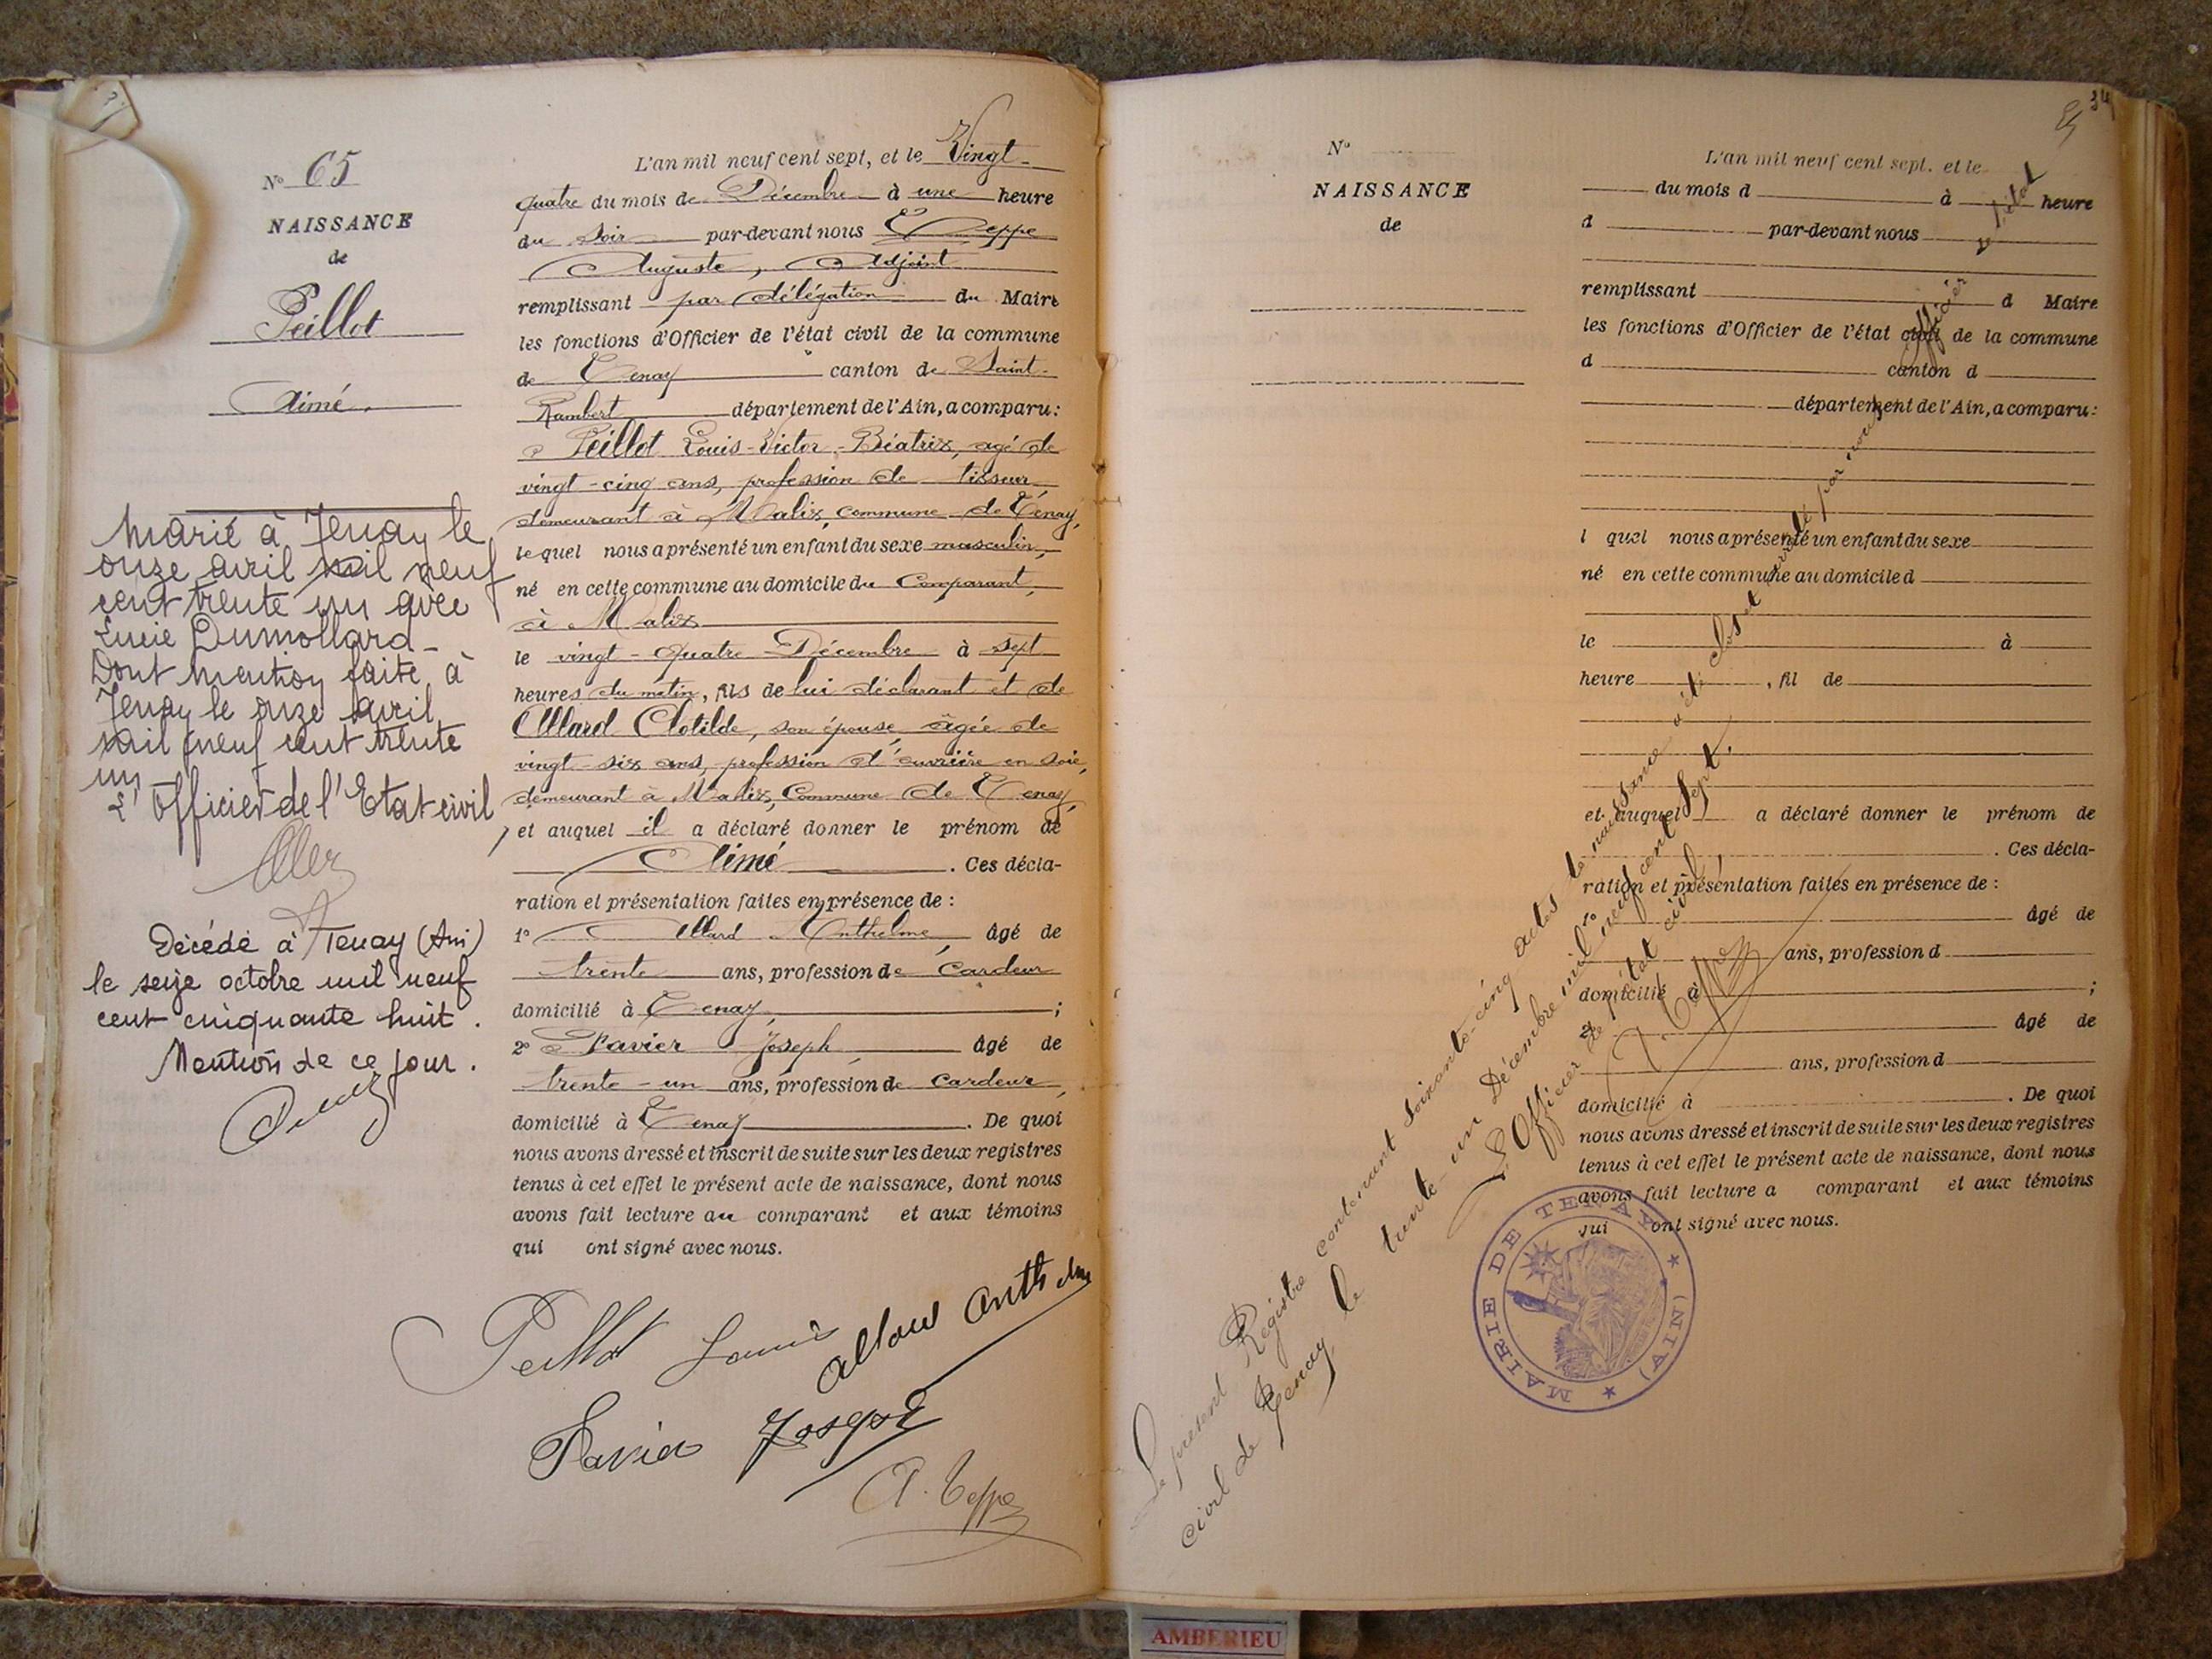 Nº 65
NAISSANCE
de
Peillot
Aimé.
Marié à Tenay le
onze avril mil neuf
cent trente un avec
Lucie Dumollard_
Dont mention faite à
Tenay le onze avril
mil neuf cent trente
un
L'Officier de l'Etat civil
Décédé à Tenay (Ain)
le seize octobre mil neuf
cent cinquante huit.
Mention de ce jour.
L'an mil neuf cent sept, et le Vingt-
quatre du mois de Décembre à une heure
du soir par-devant nous Teppe
Auguste, Adjoint
remplissant par délégation du Maire
les fonctions d'Officier de l'état civil de la commune
de Tenay canton de Saint-
Rambert département de l'Ain, a comparu:
Peillot Louis-Victor-Béatrix, agé de
vingt-cinq ans, profession de tisseur,
demeurant à Malix, commune de Tenay,
lequel nous a présenté un enfant du sexe masculin,
né en cette commune au domicile du Comparant,
à Malix
le vingt-quatre Décembre à sept
heures du matin, fils de lui déclarant et de
Allard Clotilde, son épouse, âgée de
vingt-six ans, profession d'ouvrière en soie,
demeurant à Malix, Commune de Tenay,
et auquel il a déclaré donner le prénom de
Aimé. Ces décla-
ration et présentation faites en présence de :
1º Allard Anthelme, âgé de
trente ans, profession de Cardeur
domicilié à Tenay, ;
2º Favier Joseph, âgé de
trente-un ans, profession de cardeur,
domicilié à Tenay. De quoi
nous avons dressé et inscrit de suite sur les deux registres
tenus à cet effet le présent acte de naissance, dont nous
avons fait lecture au comparant et aux témoins
qui ont signé avec nous.
Peillot Louis
Allard Anthelme
Favier Joseph
A. Teppe
34
Nº
NAISSANCE
de
L'an mil neuf cent sept, et le
du mois d à heure
d par-devant nous
remplissant d Maire
les fonctions d'Officier de l'état civil de la commune
d canton d
département de l'Ain, a comparu:
l quel nous a présenté un enfant du sexe
né en cette commune au domicile d
le à
heure , fil de
et auquel a déclaré donner le prénom de
. Ces décla-
ration et présentation faites en présence de :
1º âgé de
ans, profession d
domicilié à ;
2º âgé de
ans, profession d
domicilié à . De quoi
nous avons dressé et inscrit de suite sur les deux registres
tenus à cet effet le présent acte de naissance, dont nous
avons fait lecture a comparant et aux témoins
qui ont signé avec nous.
Le présent Registre contenant soixante-cinq actes de naissance a été clos et arrêté par nous Officier d'état
civil de Tenay, le trente-un Décembre mil neuf cent sept.
L'Officier de l'état civil,
A. Teppe
MAIRIE DE TENAY (AIN)
AMBERIEU